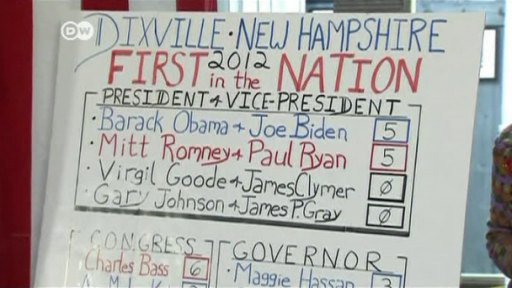 DW
DIXVILLE · NEW HAMPSHIRE
FIRST 2012 in the NATION
PRESIDENT & VICE-PRESIDENT
· Barack Obama & Joe Biden 5
· Mitt Romney & Paul Ryan 5
· Virgil Goode & James Clymer 0
· Gary Johnson & James P. Gray 0
CONGRESS
Charles Bass 6
GOVERNOR
· Maggie Hassan 3